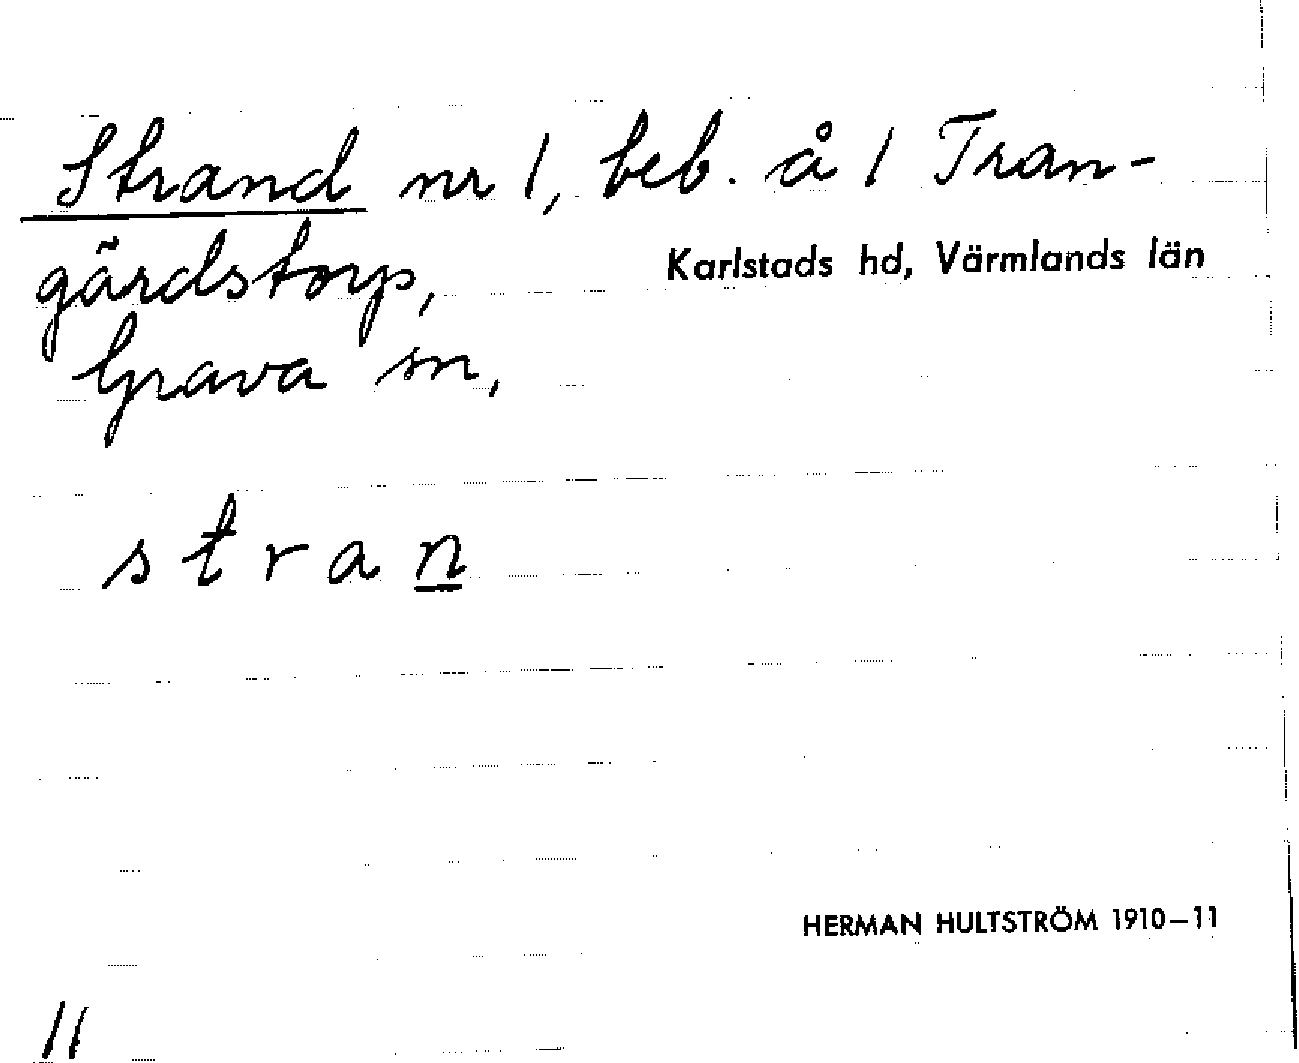 Strand nr 1, beb. å 1 Tran-
gärdstorp,
Karlstads hd, Värmlands län
Grava sn,
s t r a n
HERMAN HULTSTRÖM 1910–11
11